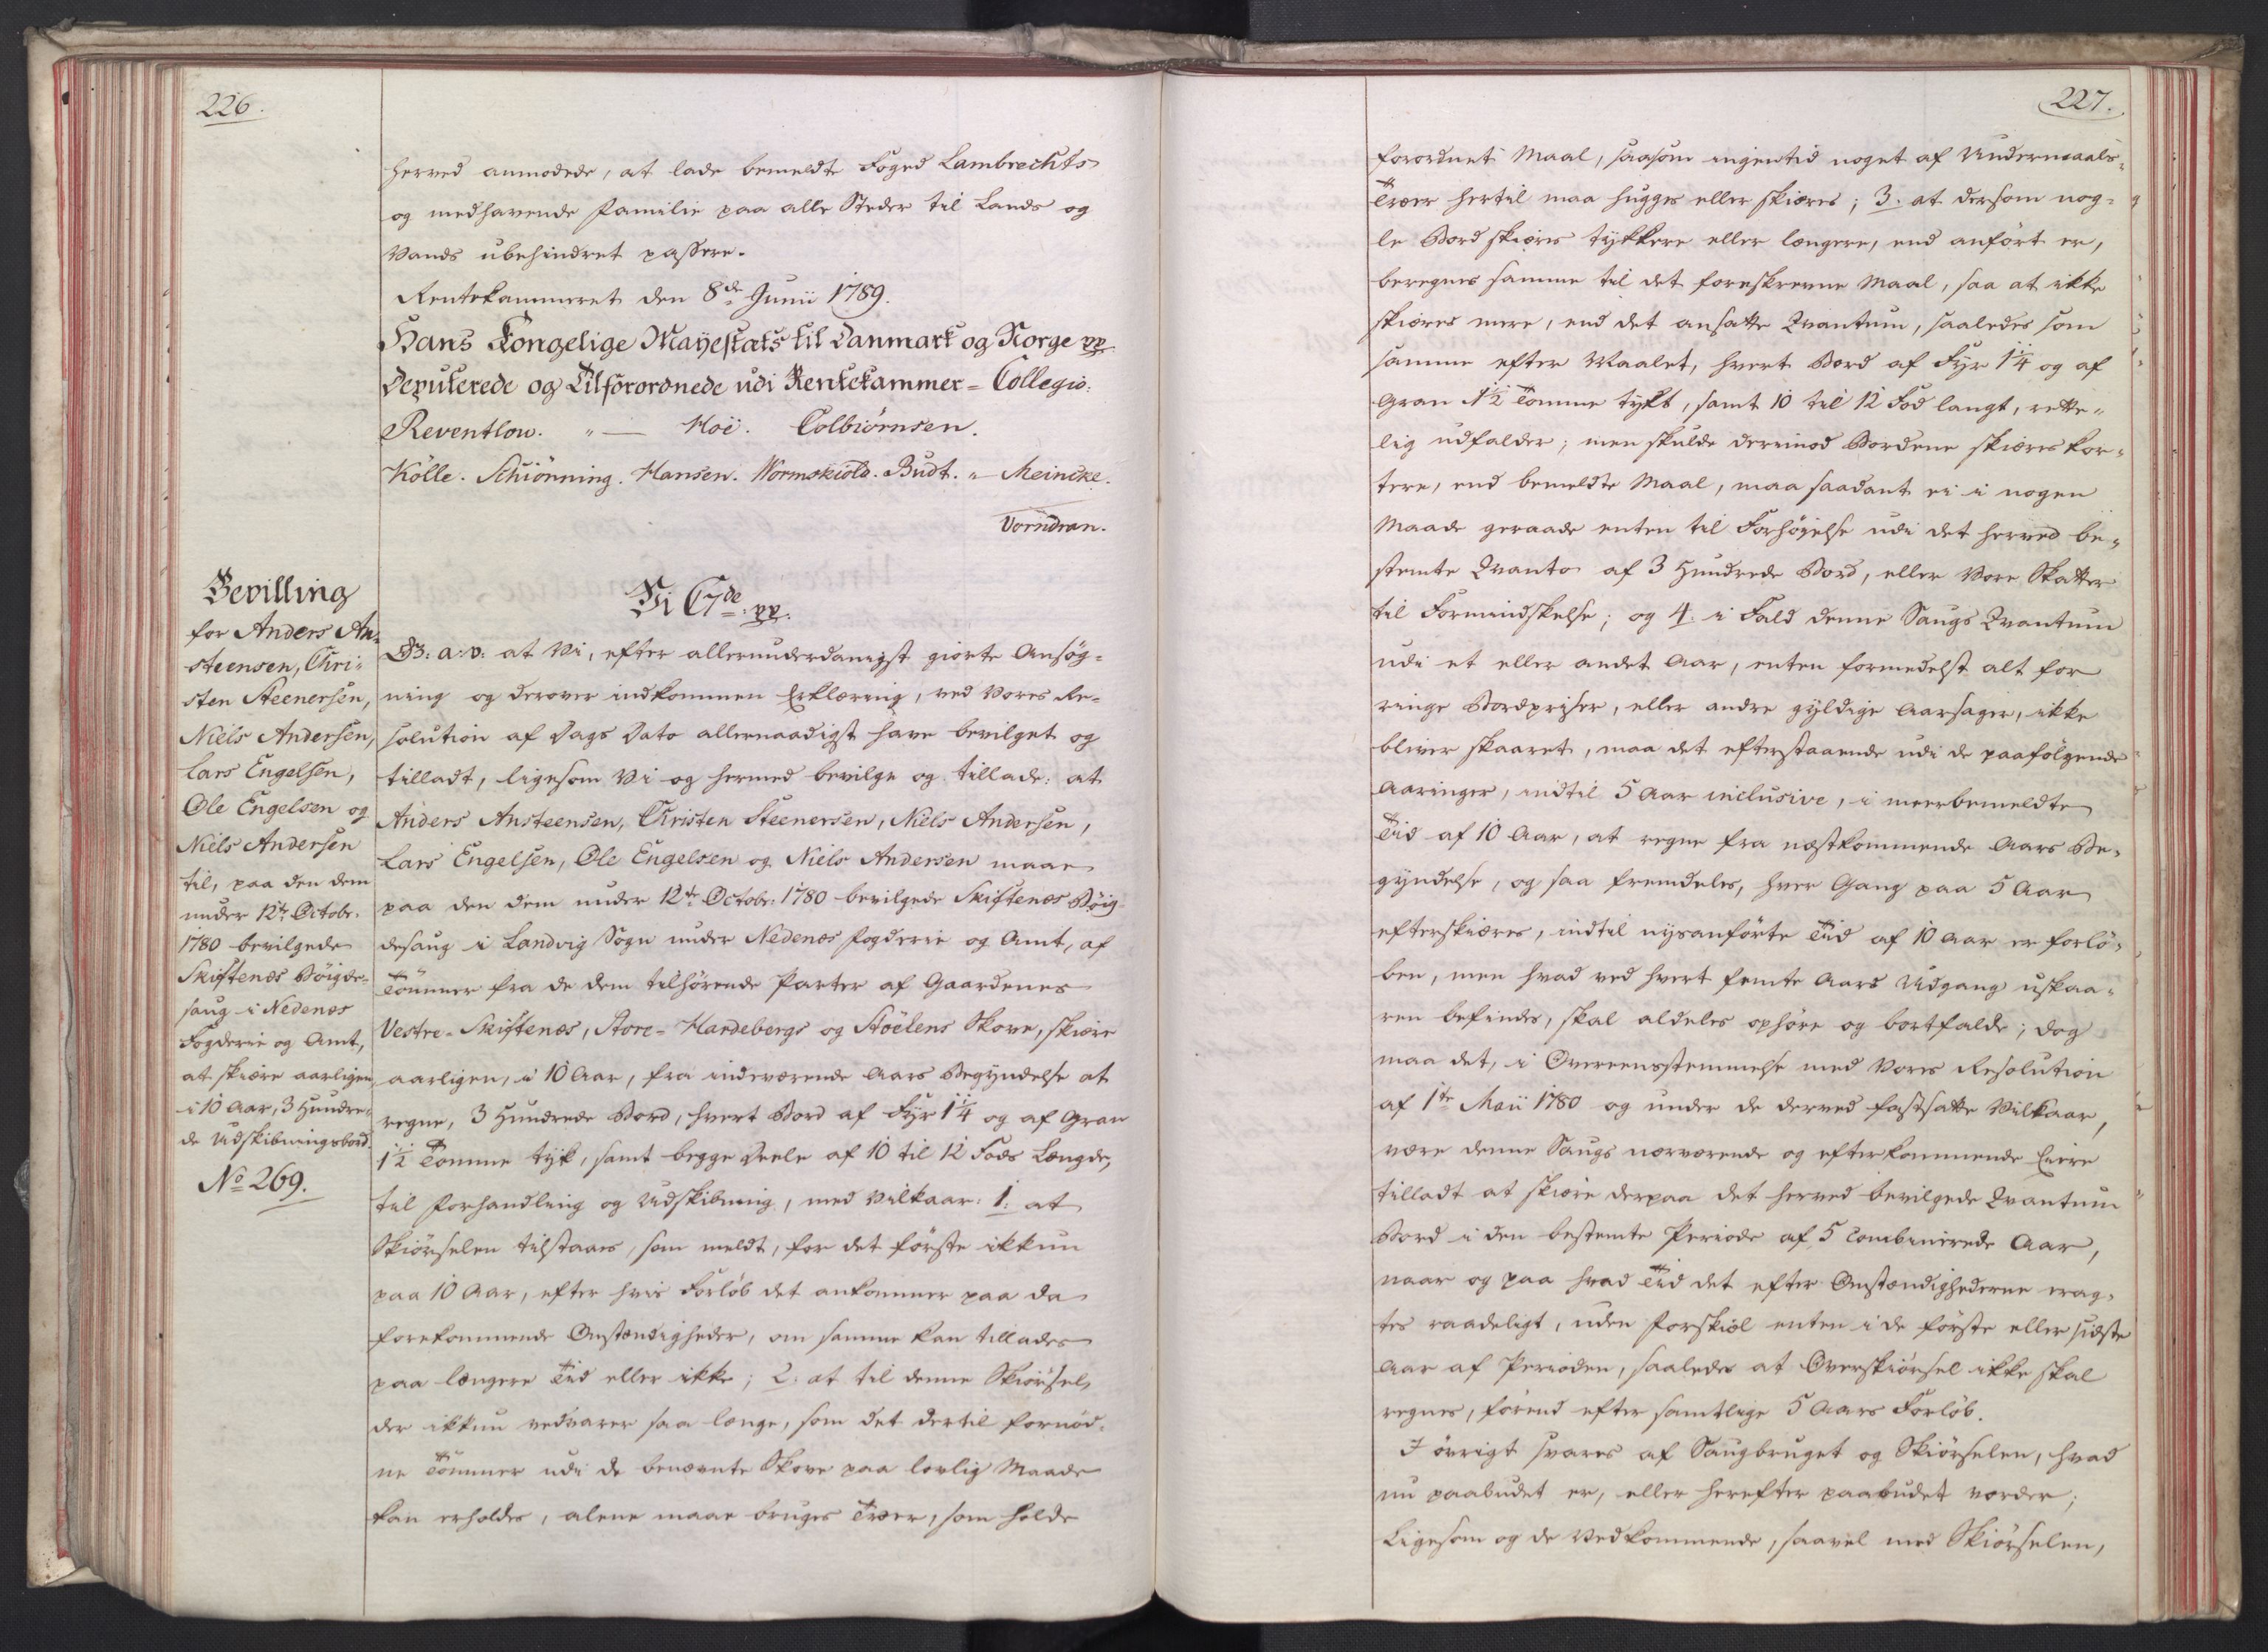 226.
herved anmodede, at lade bemeldte Foged Lambrechts
og medhavende Familie paa alle Steder til Lands og
Vands ubehindret passere.
Rentekammeret den 8de Junii 1789.
Hans Kongelige Mayestæts til Danmark og Norge pp.
Deputerede og Tilforordnede udi Rentekammer-Collegio:
Reventlow. „ — Hoë. Colbiørnsen.
Kölle. Schiönning. Hansen. Wormskiold. Budt. „— Meincke.
Vorndran.
Bevilling
for Anders An-
steensen, Chri-
sten Steenersen,
Niels Andersen,
Lars Engelsen,
Ole Engelsen og
Niels Andersen
til, paa den dem
under 12te Octobr.
1780 bevilgede
Skiftenæs Böigde-
saug i Nedenæs
Fogderie og Amt,
at skiære aarligen
i 10 Aar, 3 Hundre-
de Udskibningsbord.
No 269.
Vi C7de. pp.
G: a: v: at Vi, efter allerunderdanigst giorte Ansøg-
ning og derover indkommen Erklæring, ved Vores Re-
solution af Dags Dato allernaadigst have bevilget og
tilladt, ligesom Vi og hermed bevilge og tillade: at
Anders Ansteensen, Christen Steenersen, Niels Andersen,
Lars Engelsen, Ole Engelsen og Niels Andersen maae
paa den dem under 12te Octobr: 1780 bevilgede Skiftenæs Böig-
desaug i Landvig Sogn under Nedenæs Fogderie og Amt, af
Tömmer fra de dem tilhørende Parter af Gaardenes
Vestre-Skiftenæs, Store-Hardebergs og Stöelens Skove, skiære
aarligen, i 10 Aar, fra indeværende Aars Begyndelse at
regne, 3 Hundrede Bord, hvert Bord af Fyr 1¼ og af Gran
1½ Tomme tyk, samt begge Deele af 10 til 12 Fods Længde,
til Forhandling og Udskibning, med Vilkaar: 1: at
Skiörselen tilstaaes, som meldt, for det förste ikkun
paa 10 Aar, efter hvis Forløb det ankommer paa da
forekommende Omstændigheder, om samme kan tillades
paa længere Tid eller ikke; 2: at til denne Skiörsel,
der ikkun vedvarer saa længe, som det dertil fornöd-
ne Tömmer udi de benævnte Skove paa lovlig Maade
kan erholdes, alene maae bruges Træer, som holde
227.
forordnet Maal, saasom ingentid noget af Undermaals-
Træer hertil maa hugges eller skiæres; 3. at dersom nog-
le Bord skiæres tykkere eller længere, end anført er,
beregnes samme til det foreskrevne Maal, saa at ikke
skiæres mere, end det ansatte Qvantum, saaledes som
samme efter Maalet, hvert Bord af Fyr 1¼ og af
Gran 1½ Tomme tykt, samt 10 til 12 Fod langt, rette-
lig udfalder; men skulde derimod Bordene skiæres kor-
tere, end bemeldte Maal, maa saadant ei i nogen
Maade geraade enten til Forhøyelse udi det herved be-
stemte Qvanto af 3 Hundrede Bord, eller Vore Skatter
til Formindskelse; og 4: i Fald denne Saugs Qvantum
udi et eller andet Aar, enten formedelst alt for
ringe Bordpriser, eller andre gyldige Aarsager, ikke
bliver skaaret, maa det efterstaaende udi de paafølgende
Aaringer, indtil 5 Aar inclusive, i meerbemeldte
Tid af 10 Aar, at regne fra næstkommende Aars Be-
gyndelse, og saa fremdeles, hver Gang paa 5 Aar
efterskiæres, indtil nysanførte Tid af 10 Aar er forlö-
ben, men hvad ved hvert femte Aars Udgang uskaa-
ren befindes, skal aldeles ophöre og bortfalde; dog
maa det, i Overeensstemmelse med Vores Resolution
af 1te Maii 1780 og under de derved fastsatte Vilkaar,
være denne Saugs nærværende og efterkommende Eiere
tilladt at skiære derpaa det herved bevilgede Qvantum
Bord i den bestemte Periode af 5 combinerede Aar,
naar og paa hvad Tid det efter Omstændighederne erag-
tes raadeligt, uden Forskiæl enten i de første eller sidste
Aar af Perioden, saaledes at Overskiörsel ikke skal
regnes, förend efter samtlige 5 Aars Forløb.
I övrigt svares af Saugbruget og Skiörselen, hvad
nu paabudet er, eller herefter paabudet vorder;
Ligesom og de Vedkommende, saavel med Skiörselen,